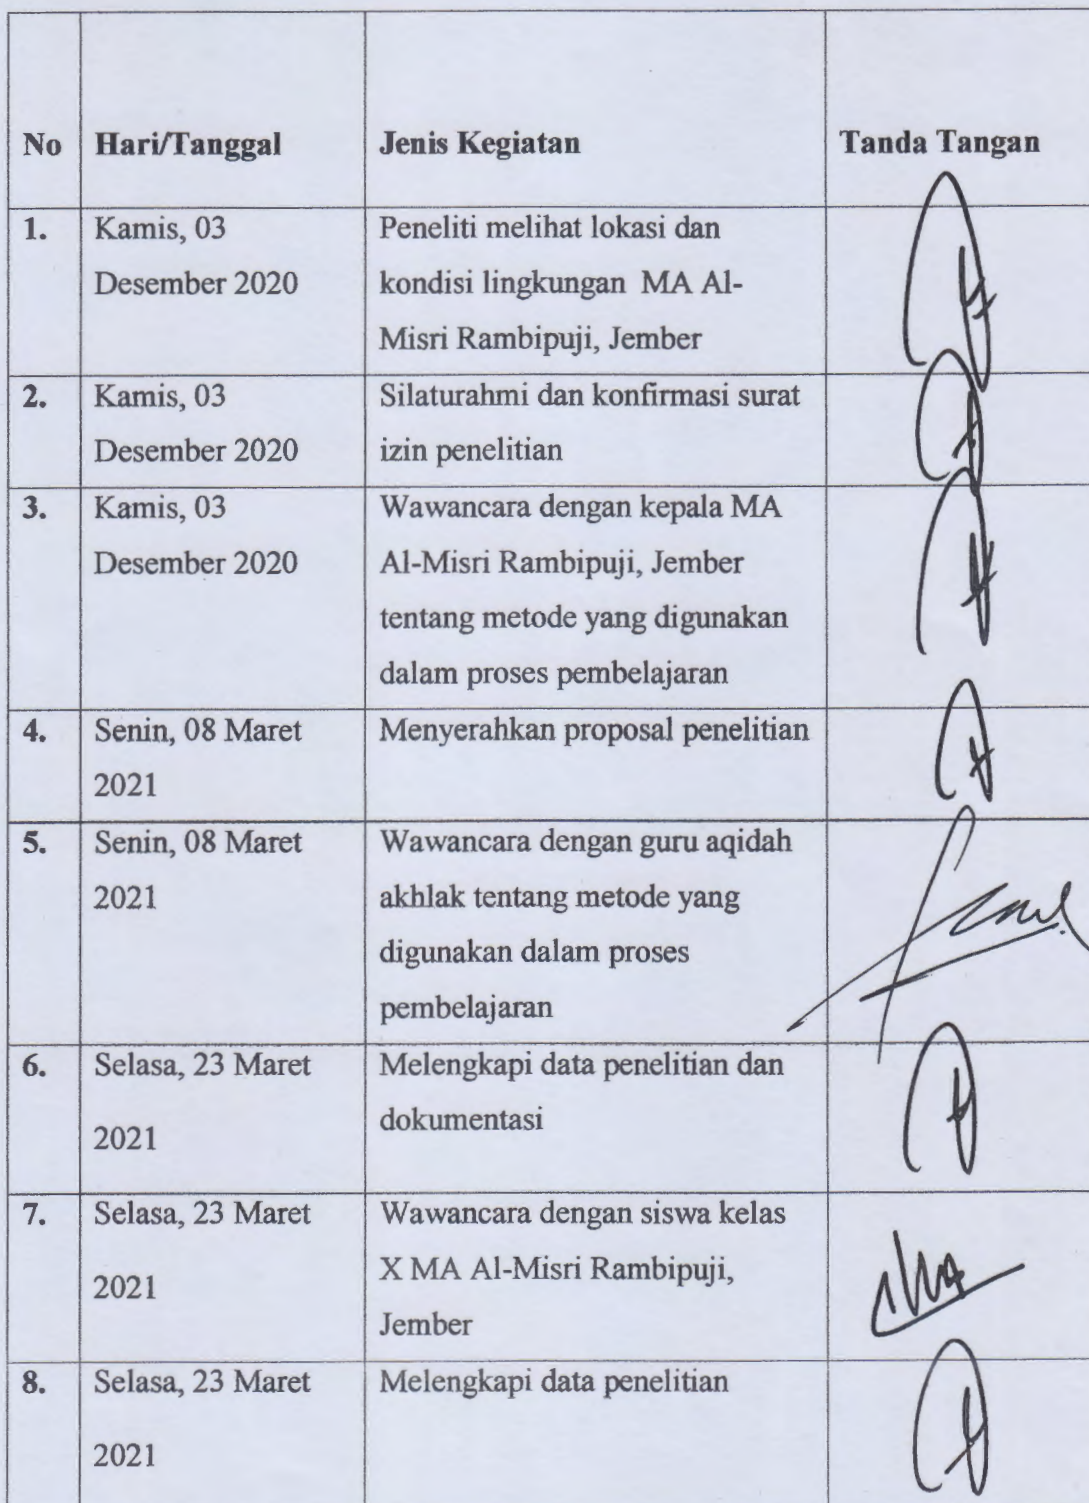 No Hari/Tanggal Jenis Kegiatan Tanda Tangan
1. Kamis, 03 Peneliti melihat lokasi dan
Desember 2020 kondisi lingkungan MA Al-
Misri Rambipuji, Jember
2. Kamis, 03 Silaturahmi dan konfirmasi surat
Desember 2020 izin penelitian
3. Kamis, 03 Wawancara dengan kepala MA
Desember 2020 Al-Misri Rambipuji, Jember
tentang metode yang digunakan
dalam proses pembelajaran
4. Senin, 08 Maret Menyerahkan proposal penelitian
2021
5. Senin, 08 Maret Wawancara dengan guru aqidah
2021 akhlak tentang metode yang
digunakan dalam proses
pembelajaran
6. Selasa, 23 Maret Melengkapi data penelitian dan
2021 dokumentasi
7. Selasa, 23 Maret Wawancara dengan siswa kelas
2021 X MA Al-Misri Rambipuji,
Jember
8. Selasa, 23 Maret Melengkapi data penelitian
2021